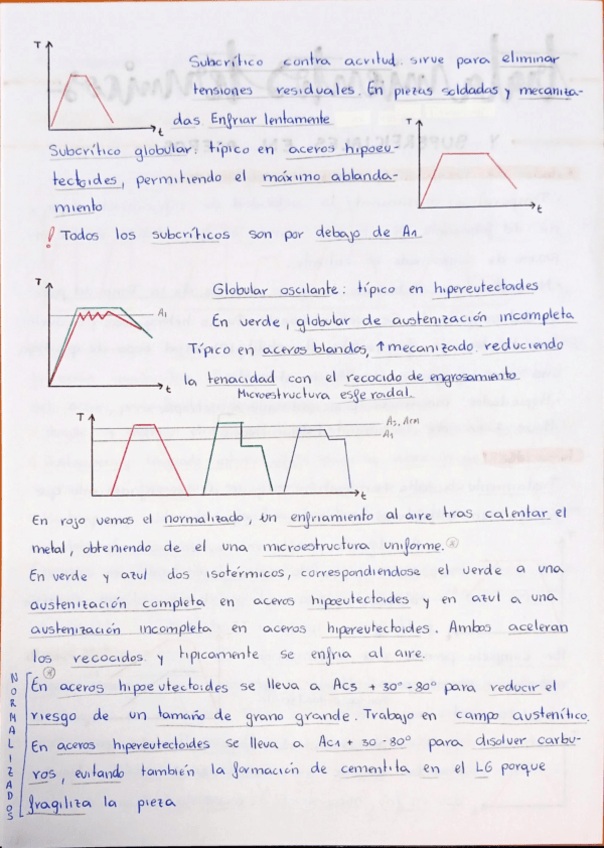 T
Subcrítico contra acritud. sirve para eliminar
tensiones residuales. En piezas soldadas y mecaniza-
t
das. Enfriar lentamente
T
Subcrítico globular: típico en aceros hipoeu-
tectoides, permitiendo el máximo ablanda-
miento
t
! Todos los subcríticos son por debajo de A1
T
Globular oscilante: típico en hipereutectoides
A1
En verde, globular de austenización incompleta
Típico en aceros blandos, ↑mecanizado. reduciendo
la tenacidad con el recocido de engrosamiento
t
Microestructura esferoidal
T
A3, Acm
A1
t
En rojo vemos el normalizado, un enfriamiento al aire tras calentar el
metal, obteniendo de el una microestructura uniforme.
En verde y azul dos isotérmicos, correspondiendose el verde a una
austenización completa en aceros hipoeutectoides y en azul a una
austenización incompleta en aceros hipereutectoides. Ambos aceleran
los recocidos y tipicamente se enfria al aire.
NORMALIZADOS
En aceros hipoeutectoides se lleva a Ac3 + 30°-80° para reducir el
riesgo de un tamaño de grano grande. Trabajo en campo austenítico.
En aceros hipereutectoides se lleva a Ac1 + 30-80° para disolver carbu-
ros, evitando también la formación de cementita en el LG porque
fragiliza la pieza